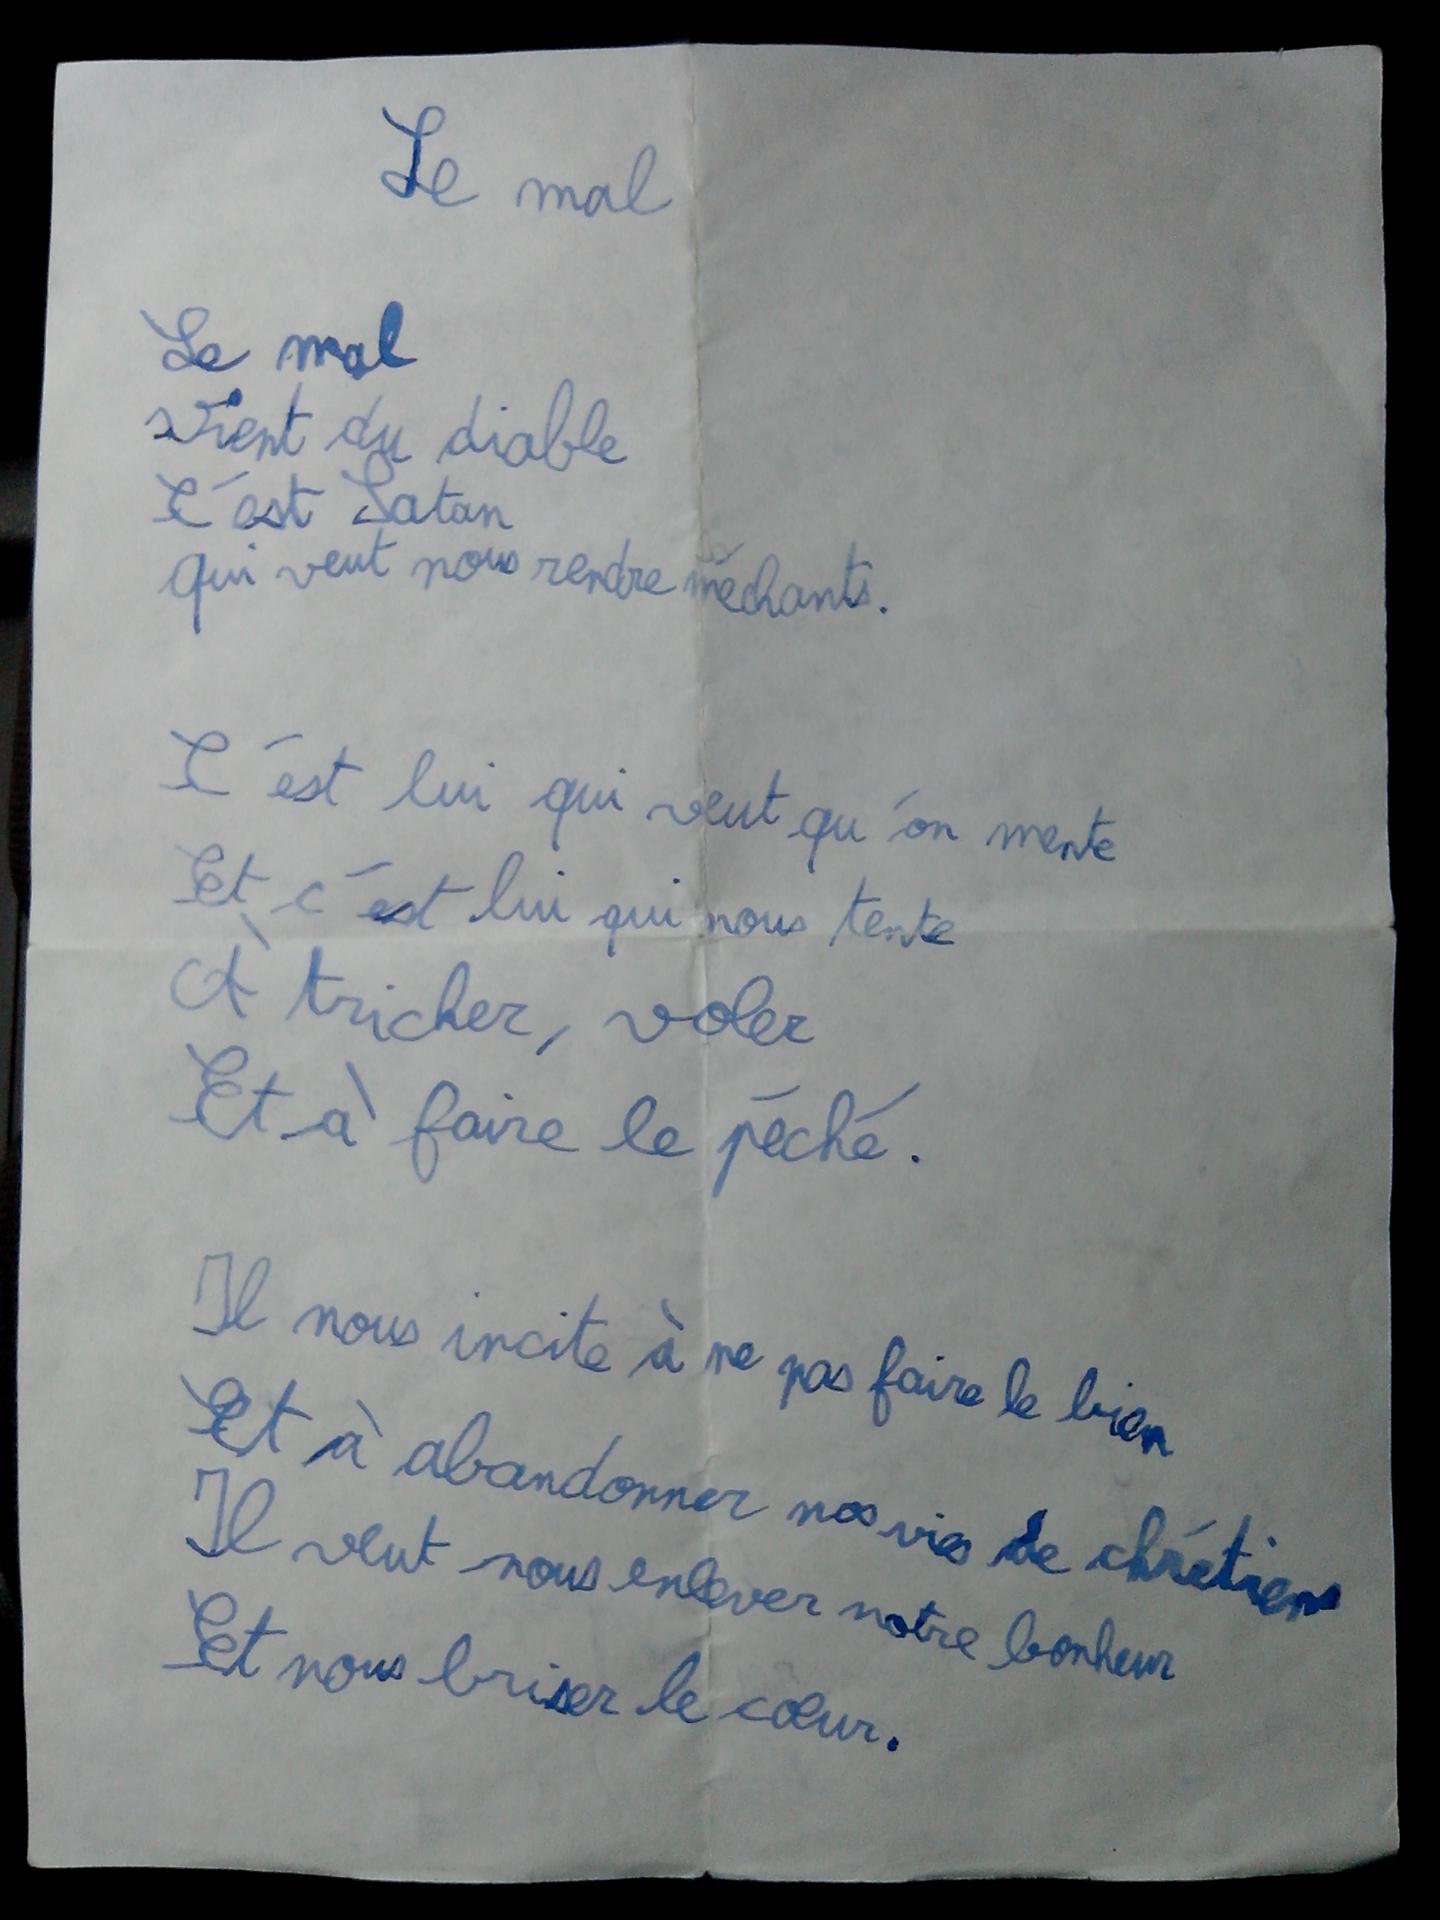 Le mal
Le mal
vient du diable
C'est Satan
qui veut nous rendre méchants.
C'est lui qui veut qu'on mente
Et c'est lui qui nous tente
À tricher, voler
Et à faire le péché.
Il nous incite à ne pas faire le bien
Et à abandonner nos vies de chrétiens
Il veut nous enlever notre bonheur
Et nous briser le cœur.